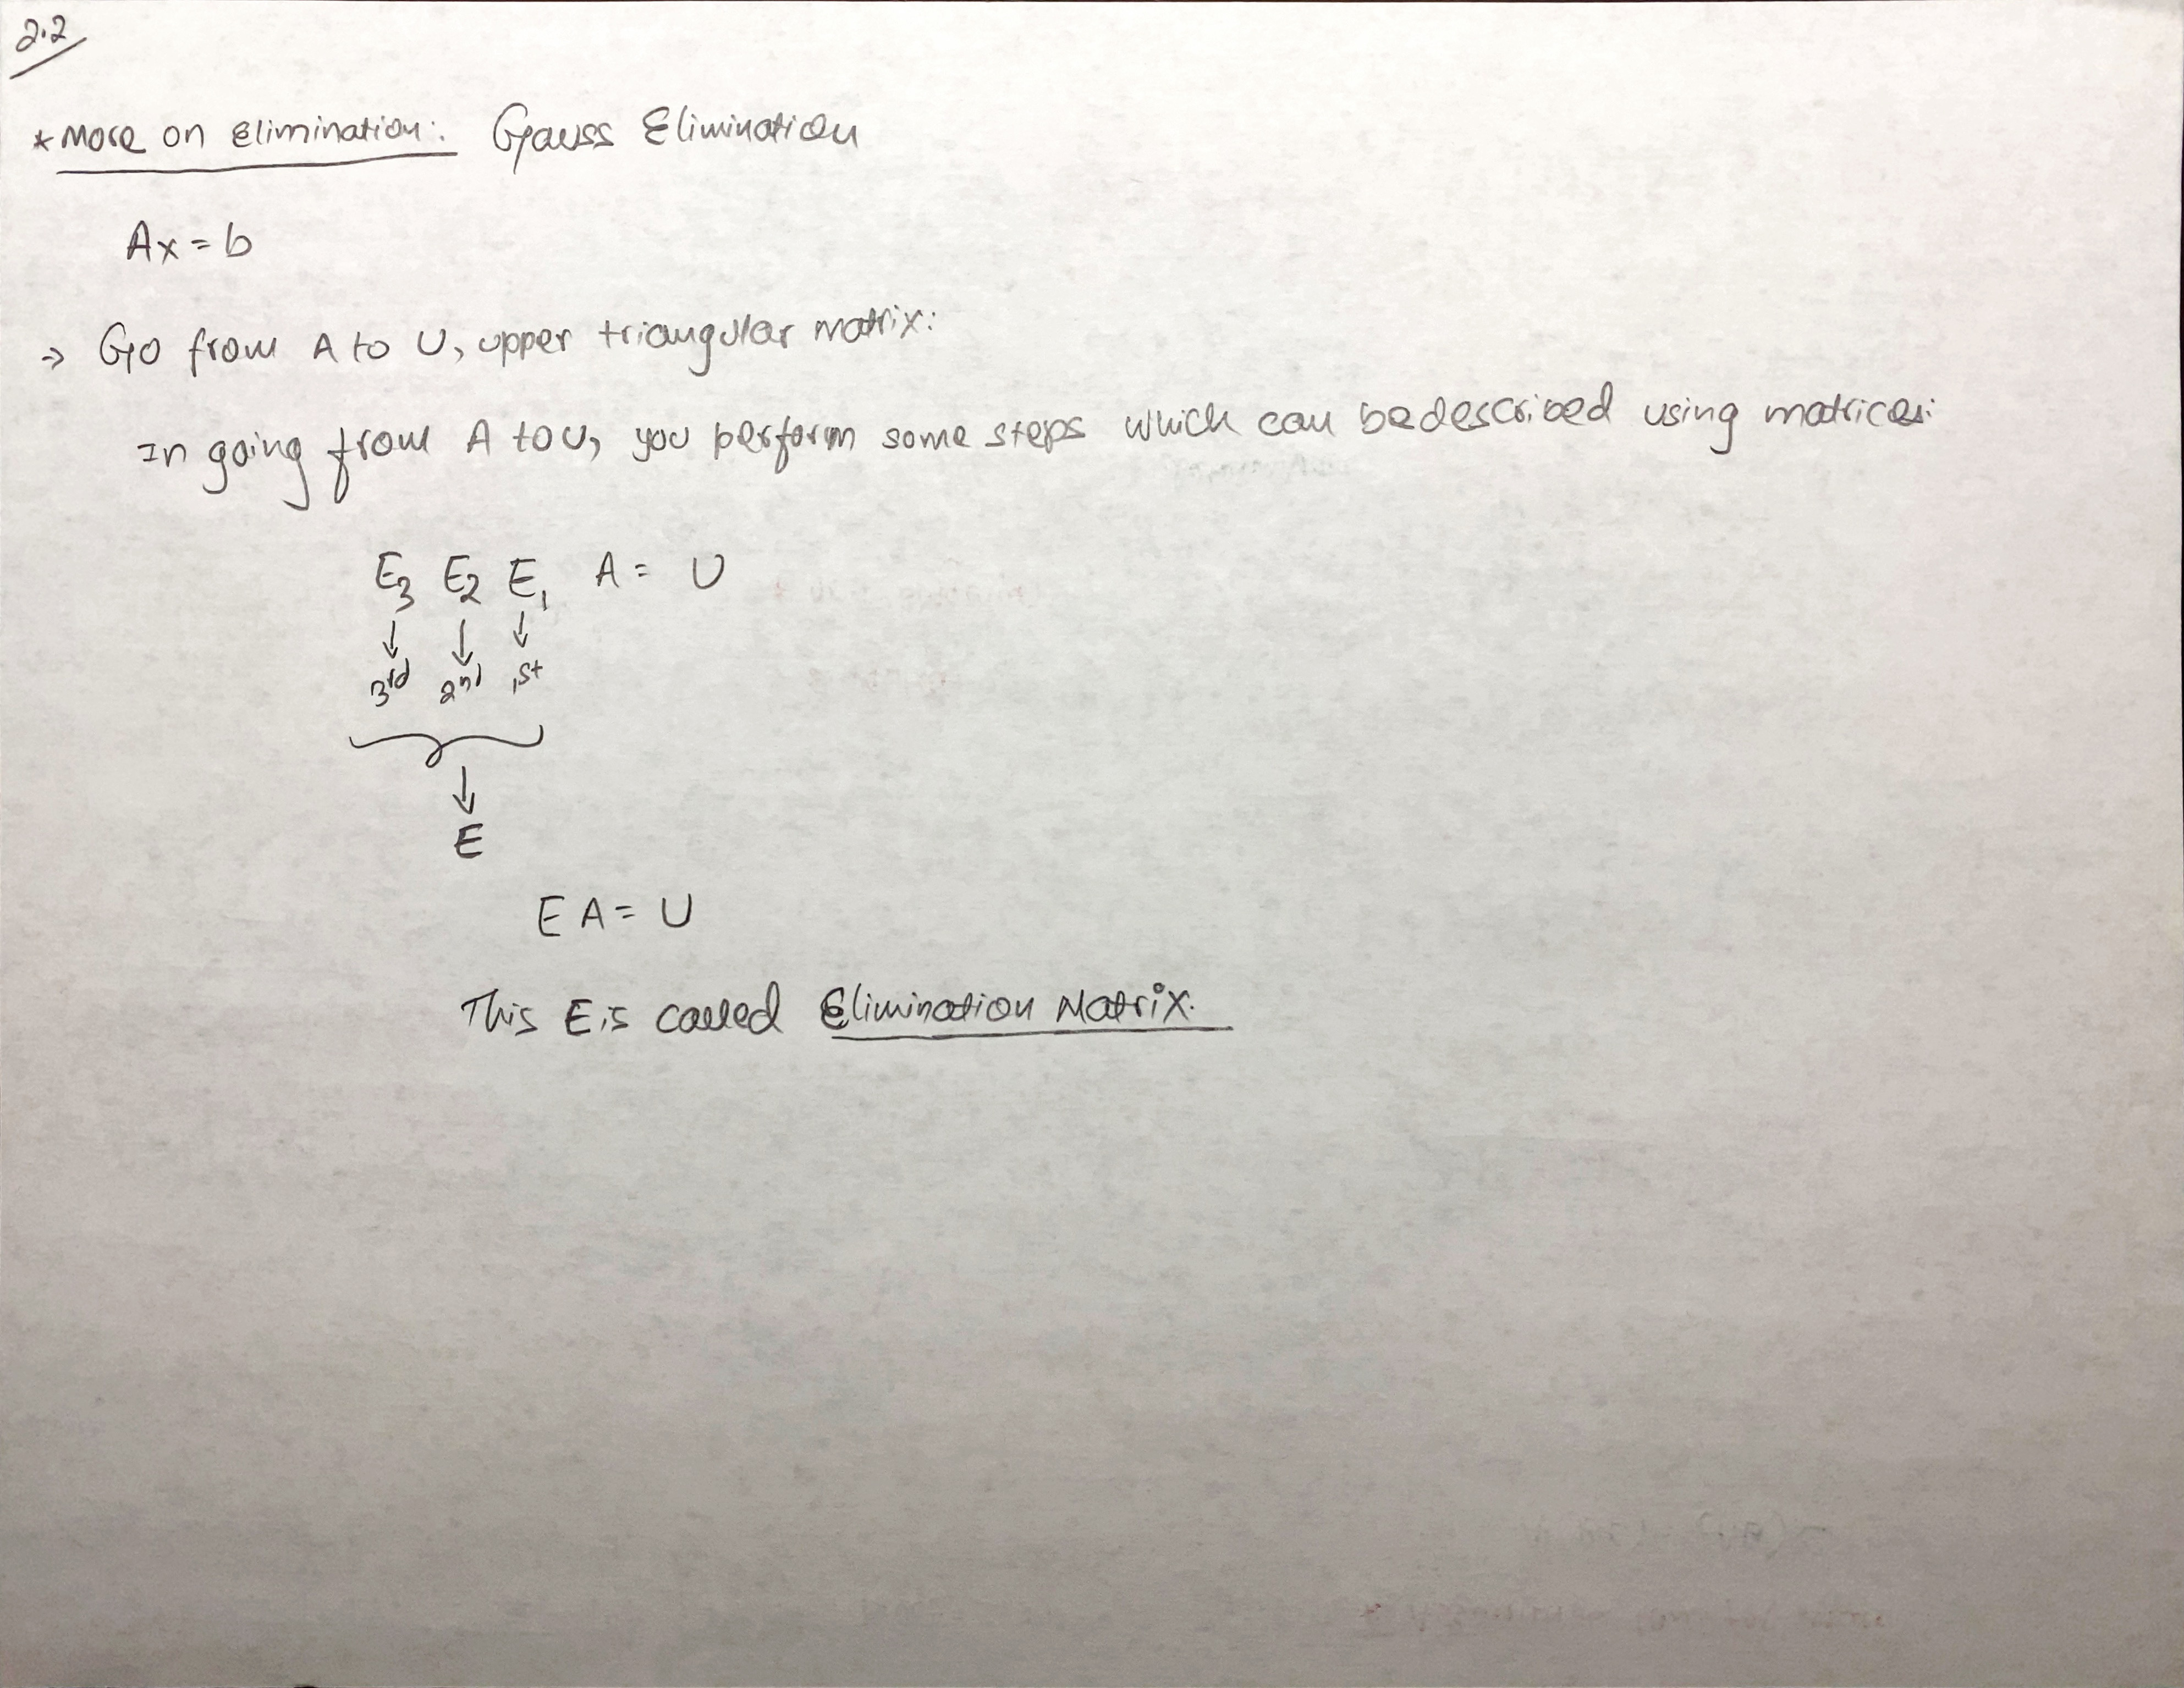 2.2
* More on Elimination: Gauss Elimination
Ax = b
→ Go from A to U, upper triangular matrix:
In going from A to U, you perform some steps which can be described using matrices:
E₃ E₂ E₁ A = U
↓ ↓ ↓
3rd 2nd 1st
↓
E
E A = U
This E is called Elimination Matrix.